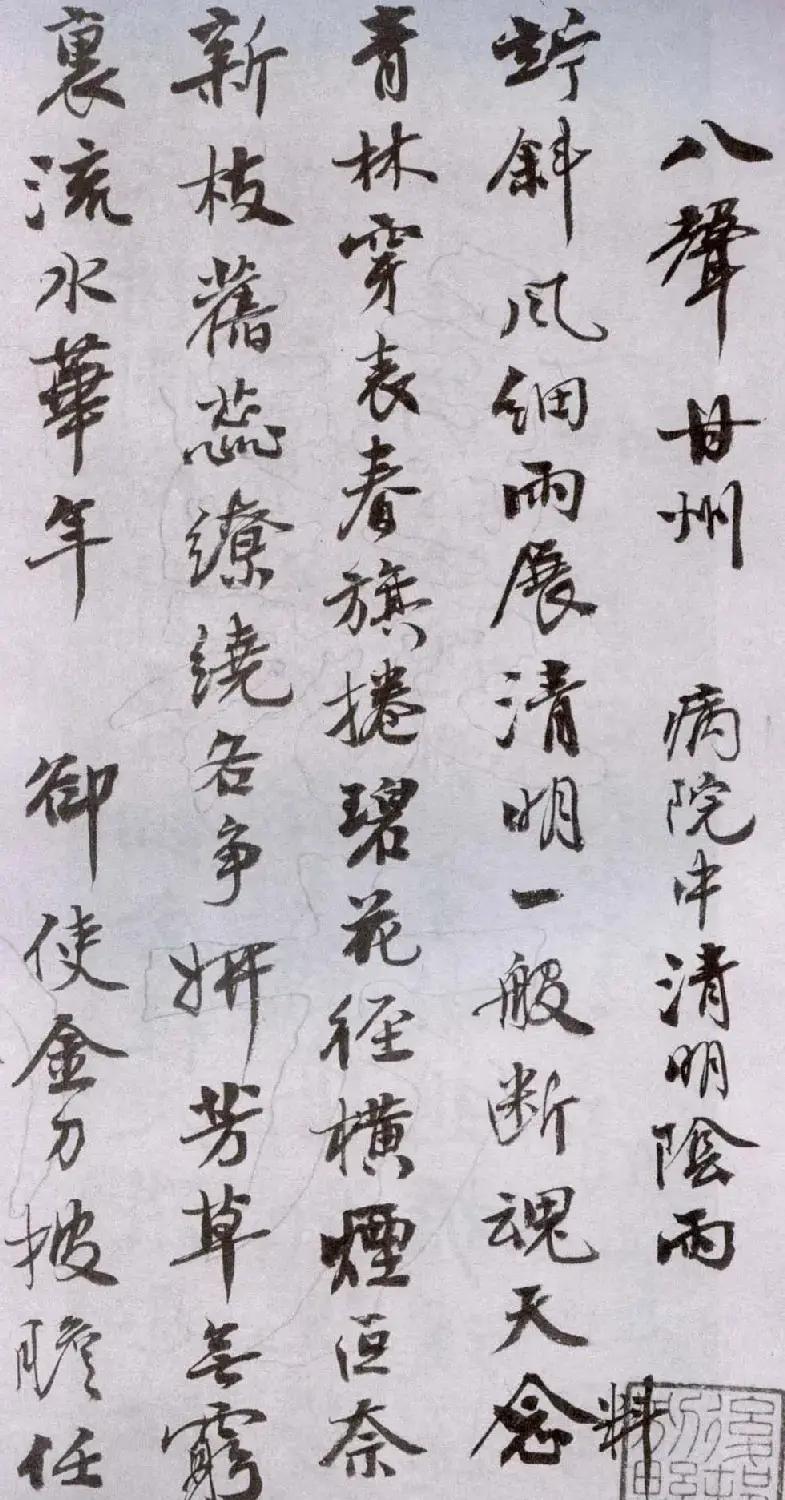 八聲甘州 病院中清明陰雨
竚斜風細雨展清明一般断魂天念料
青林穿表春旗捲碧花徑橫煙叵奈
新枝舊蕊繚繞各争妍芳草無窮
裏流水華年 卻使金刀披膽任